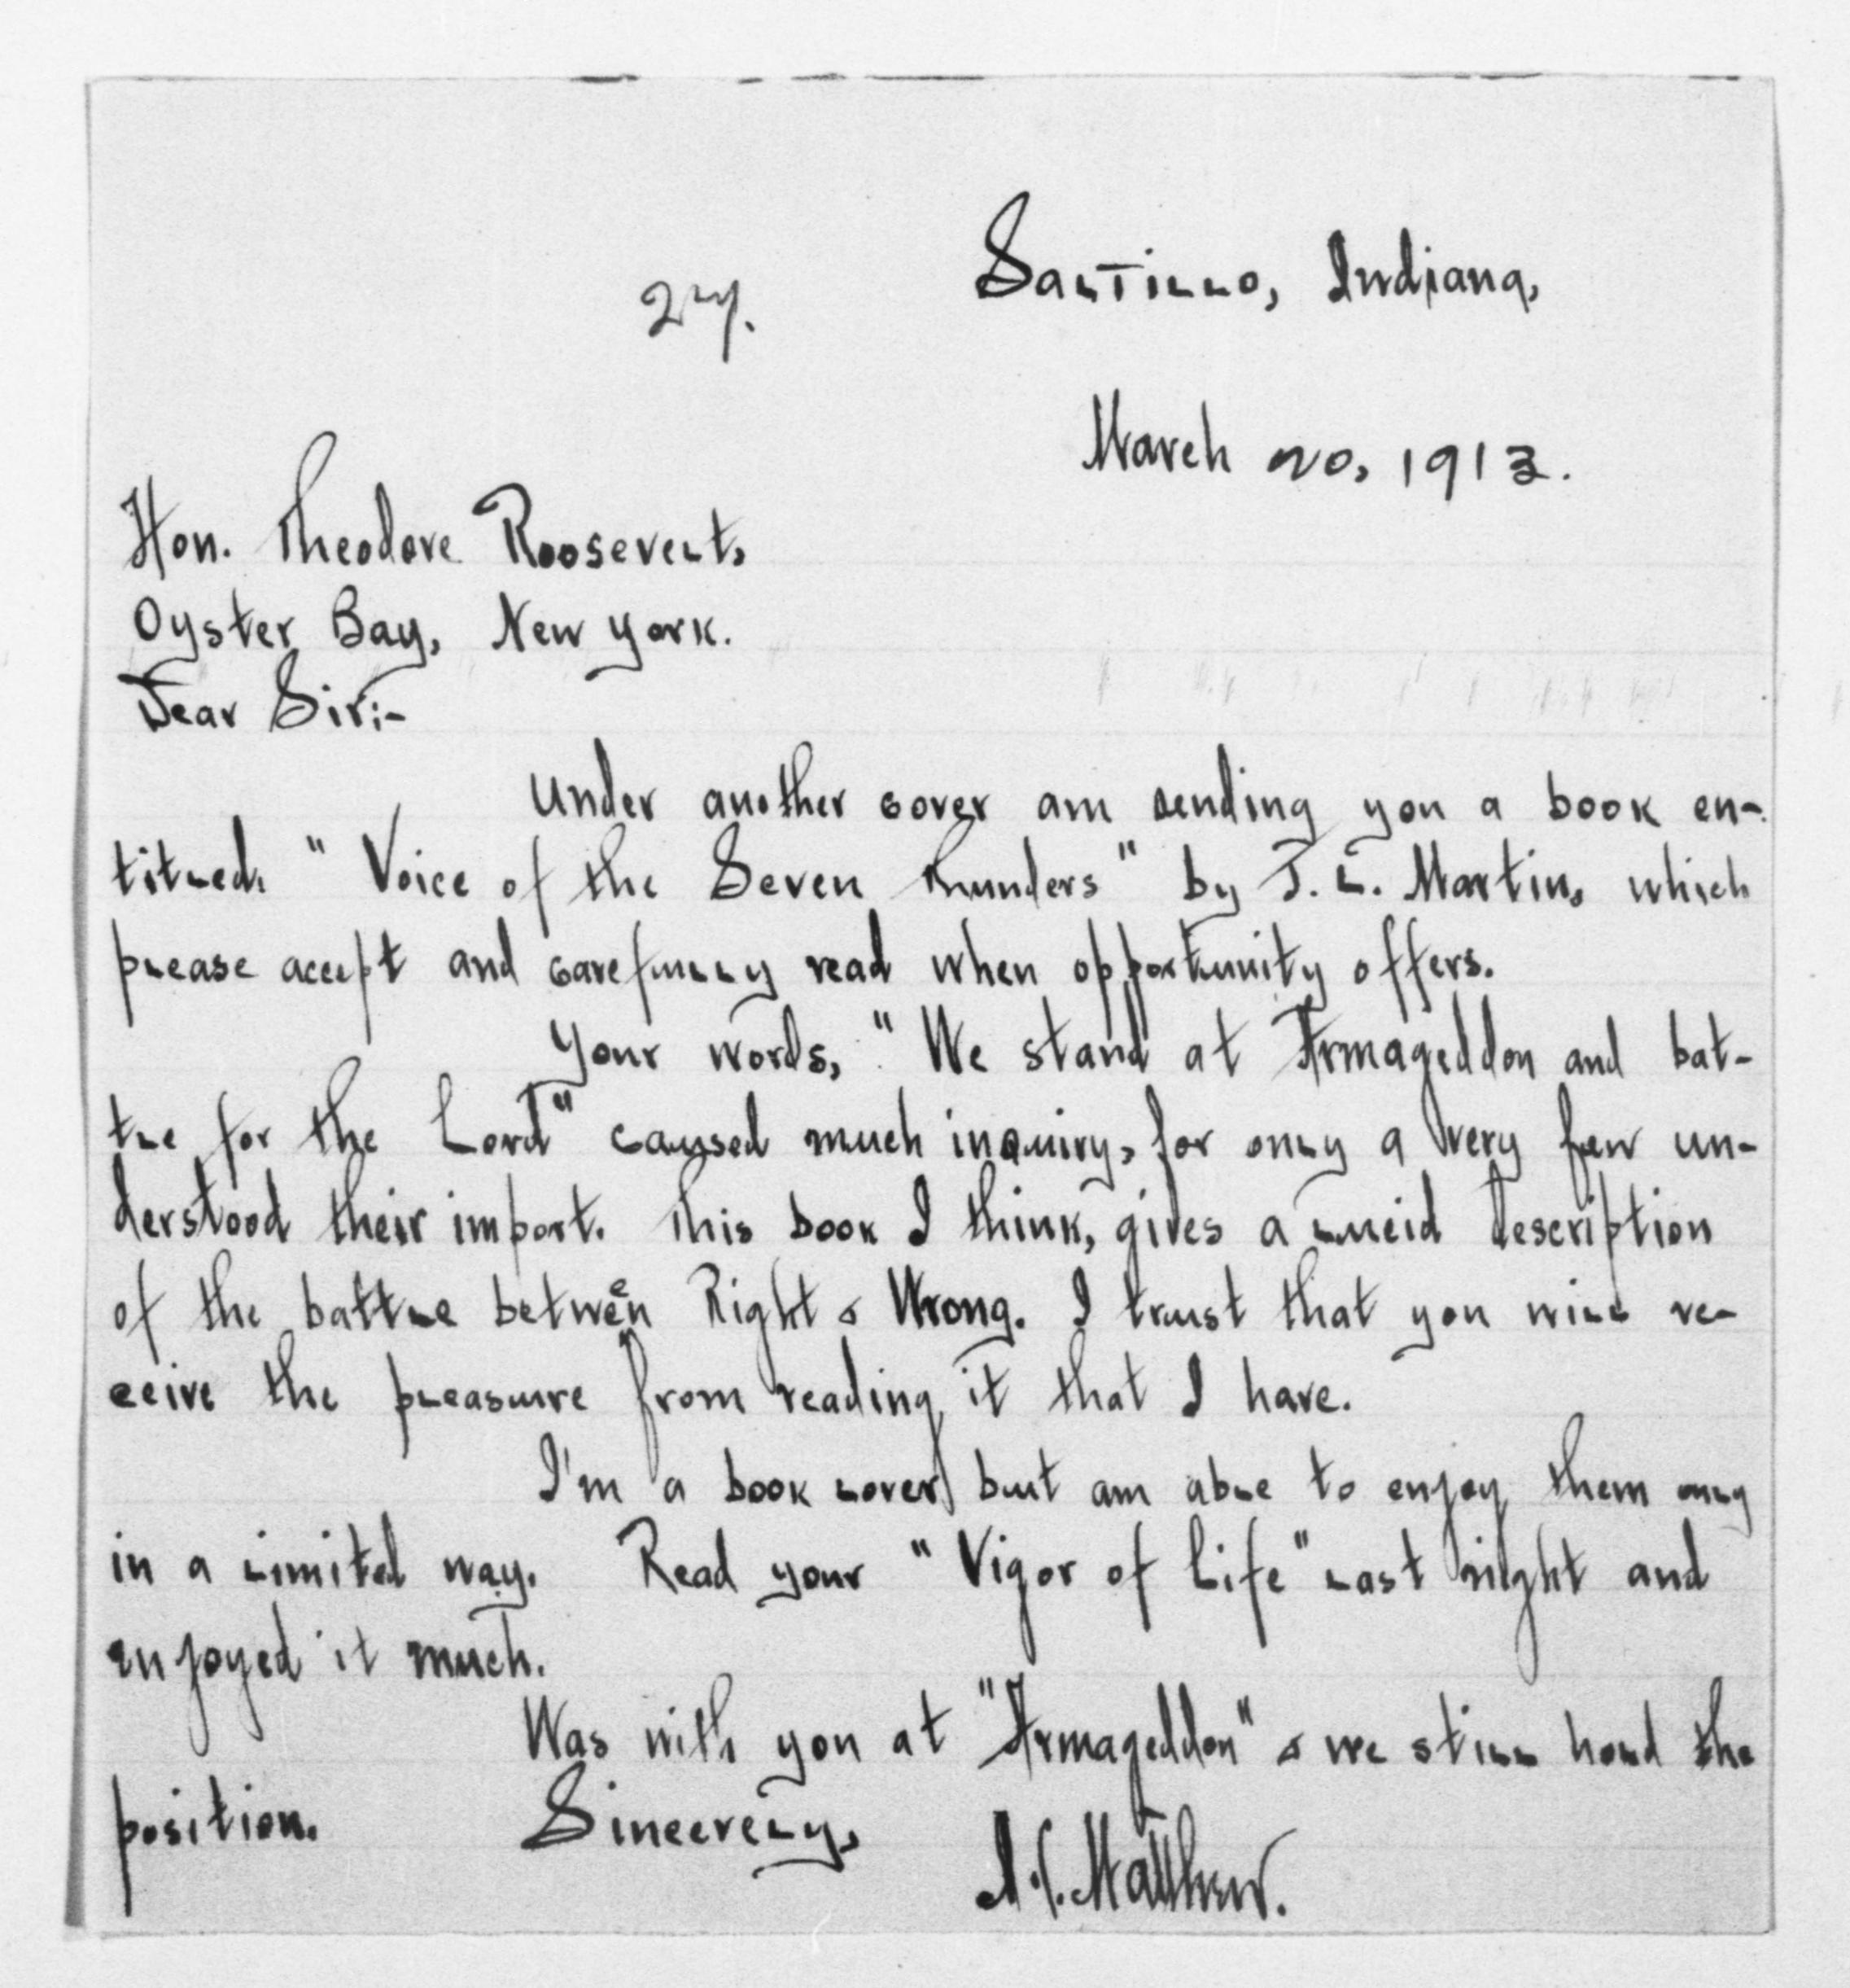 Saltillo, Indiana,
27.
March 20, 1913.
Hon. Theodore Roosevelt,
Oyster Bay, New York.
Dear Sir:-
Under another cover am sending you a book en-
titled, "Voice of the Seven Thunders" by J. L. Martin, which
please accept and carefully read when opportunity offers.
Your words, "We stand at Armageddon and bat-
tle for the Lord" caused much inquiry, for only a very few un-
derstood their import. This book I think, gives a lucid description
of the battle between Right & Wrong. I trust that you will re-
ceive the pleasure from reading it that I have.
I'm a book lover but am able to enjoy them only
in a limited way. Read your "Vigor of Life" last night and
enjoyed it much.
Was with you at "Armageddon" & we still hold the
position. Sincerely,
Matthew.